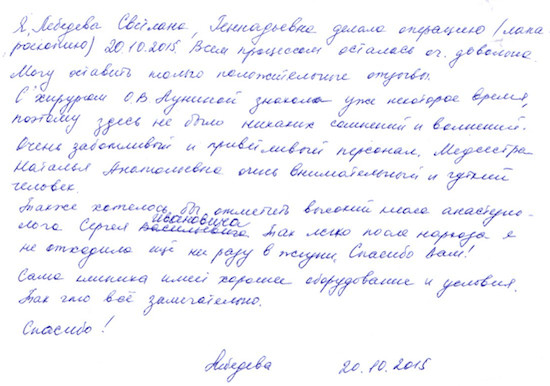 Я, Лебедева Светлана Геннадьевна делала операцию (лапа-
роскопию) 20.10.2015. Всем процессом осталась оч. довольна.
Могу оставить только положительные отзывы.
С хирургом О.В. Луниной знакома уже некоторое время,
поэтому здесь не было никаких сомнений и волнений.
Очень заботливый и приветливый персонал. Медсестра
Наталья Анатольевна очень внимательный и чуткий
человек.
Также хотелось бы отметить высокий класс анастезио-
лога Сергея Васильевича Ивановича. Так легко после наркоза я
не отходила ещё ни разу в жизни. Спасибо Вам!
Сама клиника имеет хорошее оборудование и условия.
Так что всё замечательно.
Спасибо!
Лебедева 20.10.2015